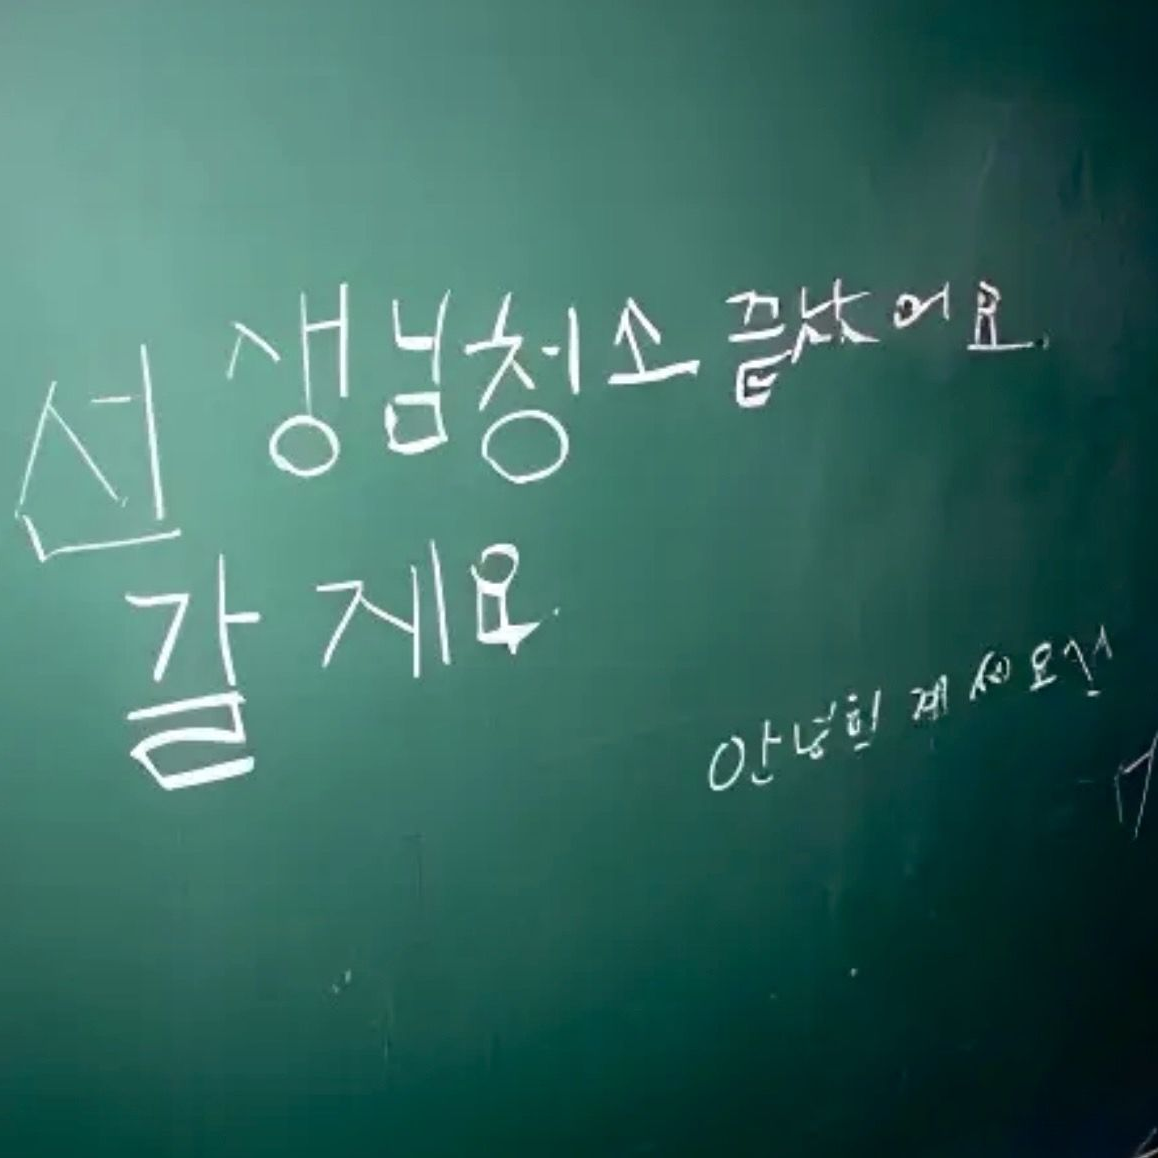 선생님청소끝났어요.
갈게요.
안녕히 계세요